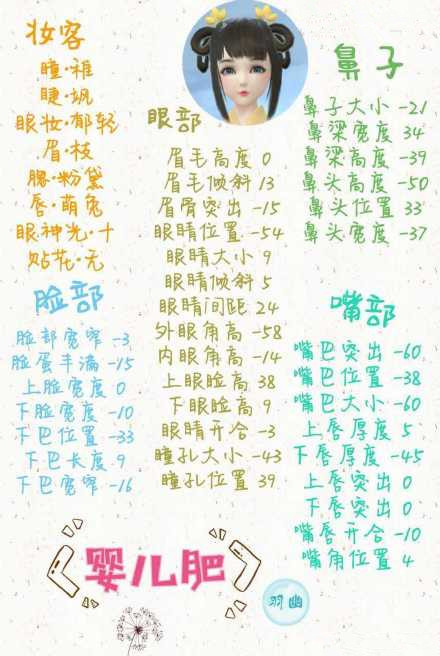 妆客
瞳·稚
睫·飒
眼妆·郁轻
眉·枝
腮·粉黛
唇·萌兔
眼神光·十
贴花·无
脸部
脸部宽窄 -3
脸蛋丰满 -15
上脸宽度 0
下脸宽度 -10
下巴位置 -33
下巴长度 9
下巴宽窄 -16
眼部
眉毛高度 0
眉毛倾斜 13
眉骨突出 -15
眼睛位置 -54
眼睛大小 9
眼睛倾斜 5
眼睛间距 24
外眼角高 -58
内眼角高 -14
上眼睑高 38
下眼睑高 9
眼睛开合 -3
瞳孔大小 -43
瞳孔位置 39
鼻子
鼻子大小 -21
鼻梁宽度 34
鼻梁高度 -39
鼻头高度 -50
鼻头位置 33
鼻头宽度 -37
嘴部
嘴巴突出 -60
嘴巴位置 -38
嘴巴大小 -60
上唇厚度 5
下唇厚度 -45
上唇突出 0
下唇突出 0
嘴唇开合 -10
嘴角位置 4
婴儿肥
羽幽